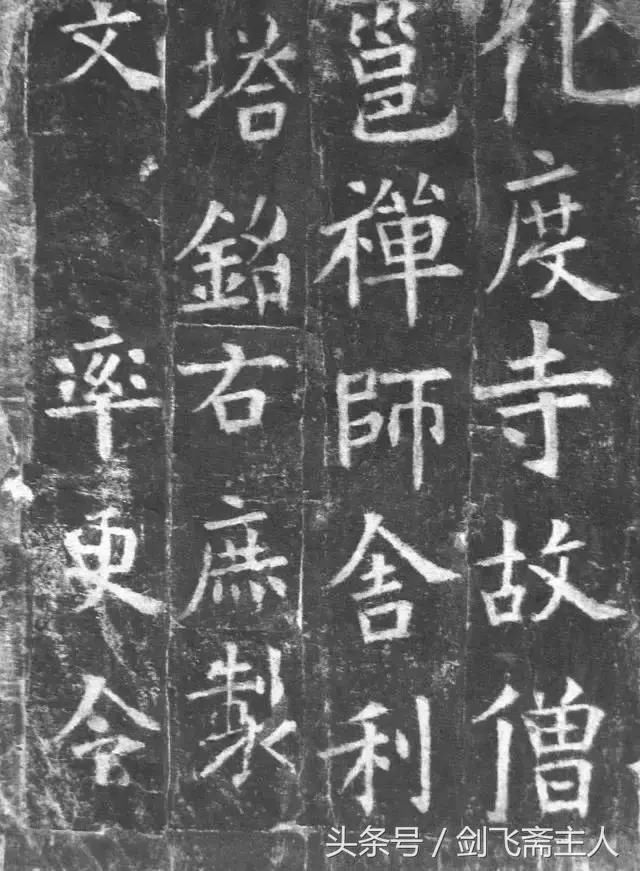 化度寺故僧
邕禪師舍利
塔銘右庶製
文 率更令
头条号 / 剑飞斋主人